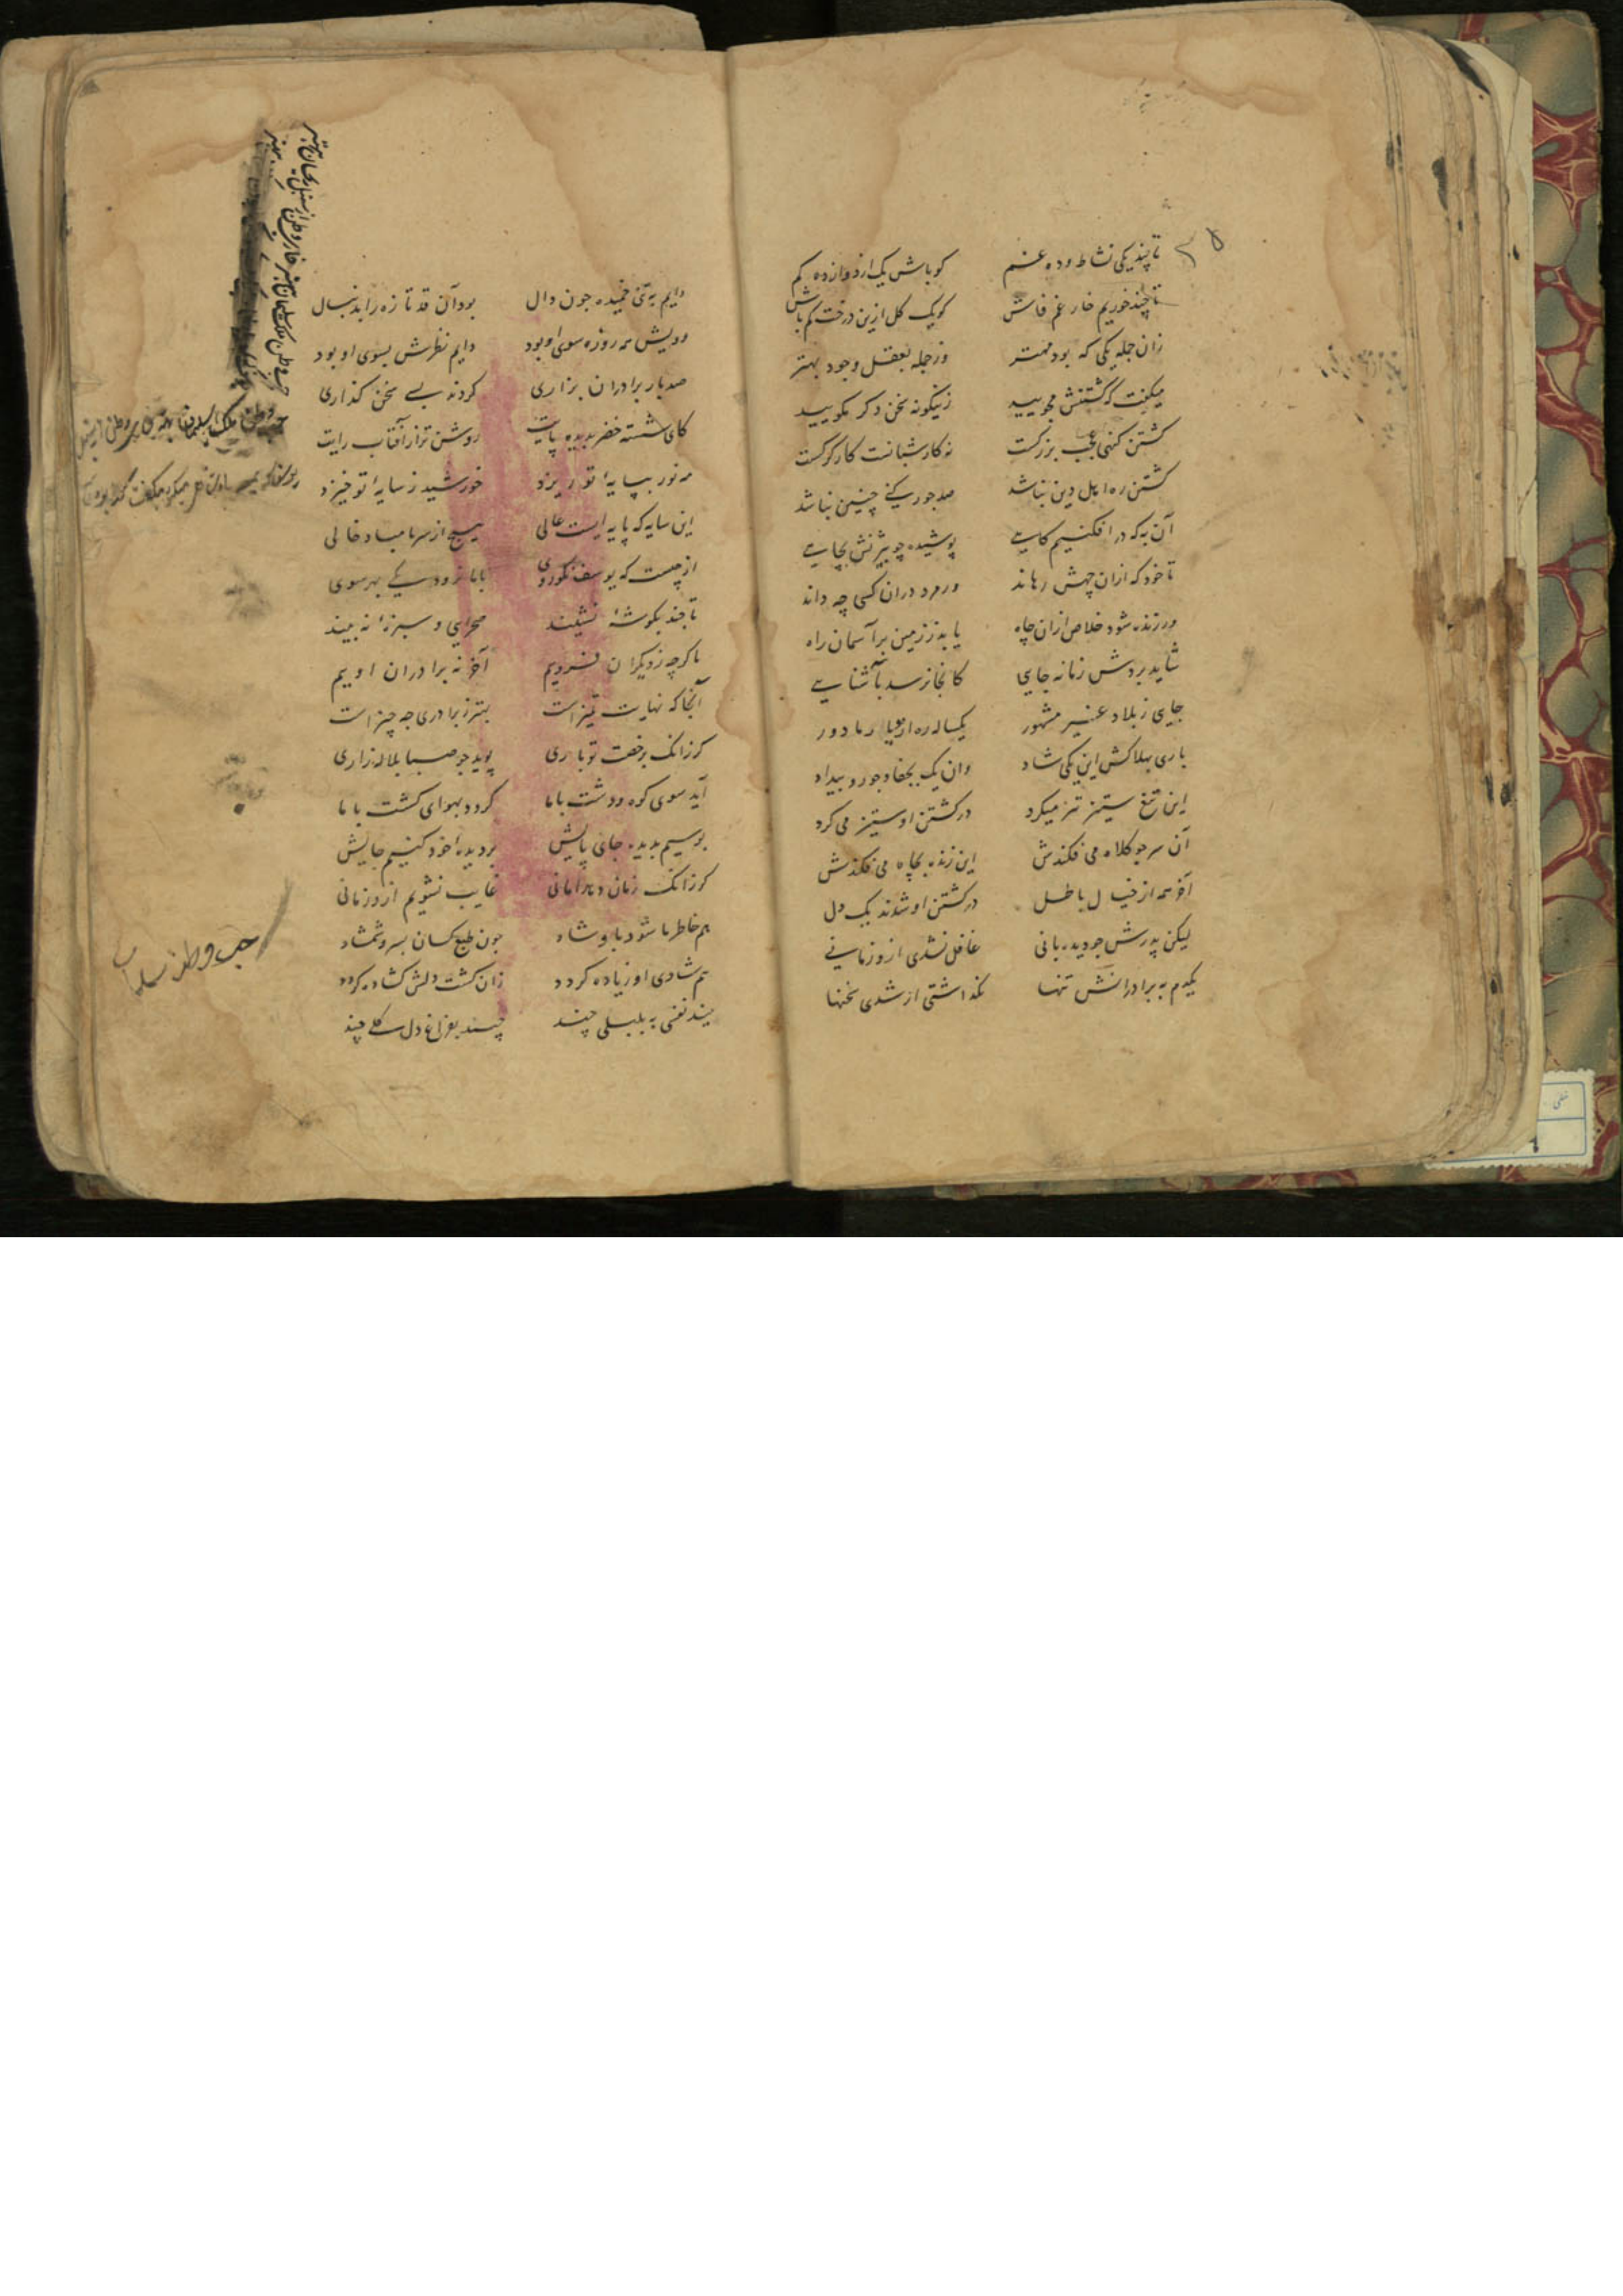 تا چند یکی نشاط و ده غم
کو باش یک از دوازده کم
تا چند خوریم خار غم فاش
کو یک کل ازین درخت کم باش
زان جمله یکی که بود مهتر
وز جمله بعقل وجود بهتر
میکفت که کشتنش مجویید
زینکونه سخن دکر مکویید
کشتن کنهی عجب بزرکست
نه کار شبانست کار کرکست
کشتن ره اهل دین نباشد
صد جور کنی چنین نباشد
آن به که در افکنیم کاهی
پوشیده چو بیژنش بچاهی
تا خود که ازان چهش رهاند
ور مرد دران کسی چه داند
ور زنده شود خلاص ازان چاه
یابد ز زمین بر آسمان راه
شاید بردش زمانه جایی
کانجا نرسد بآشنایی
جایی ز بلاد غیر مشهور
یکساله ره از دیار ما دور
باری بهلاکش این یکی شاد
وان یک بجفا و جور و بیداد
این تیغ ستیز تیز میکرد
در کشتن او ستیز می کرد
آن سر چو کلاه می فکندش
این زنده بچاه می فکندش
آخر همه از خیال باطل
در کشتن او شدند یک دل
لیکن پدرش چو دیده بانی
غافل نشدی ازو زمانی
یکدم به برادرانش تنها
نکذاشتی از شدی سخنها
دایم به تنی خمیده چون دال
بود آن قد تازه را بدنبال
رویش همه روزه سوی او بود
دایم نظرش بسوی او بود
صد بار برادران بزاری
کردند بسی سخن کذاری
کای شسته خضر بدیده پایت
روشن تر از آفتاب رایت
مه نور بپایهٔ تو ریزد
خورشید ز سایهٔ تو خیزد
این سایه که پایه ایست عالی
هیچ از سر ما مباد خالی
از چیست که یوسف نکوروی
با ما نرود یکی بهر سوی
تا چند بکوشهٔ نشیند
صحرایی و سبزهٔ نه بیند
ما کرچه ز دیکران فزودیم
آخر نه برادران اوییم
آنجا که نهایت تمیز است
بهتر ز برادری چه چیز است
کر زانک برخصت تو باری
پوید چو صبا بلاله زاری
آید سوی کوه و دشت با ما
کردد بهوای کشت با ما
بوسیم بدیده جای پایش
بر دیدهٔ خود کنیم جایش
کر زانک زمان دهد امانی
غایب نشویم ازو زمانی
هم خاطر ما شود باو شاد
چون طبع کسان بسرو شمشاد
هم شادی او زیاده کردد
زان کشت دلش کشاده کردد
بیند نفسی به بلبلی چند
چیند بفراغ دل کلی چند
حب وطن از ملک سلیمان بهتر
خار وطن از سنبل و ریحان بهتر
حب وطن